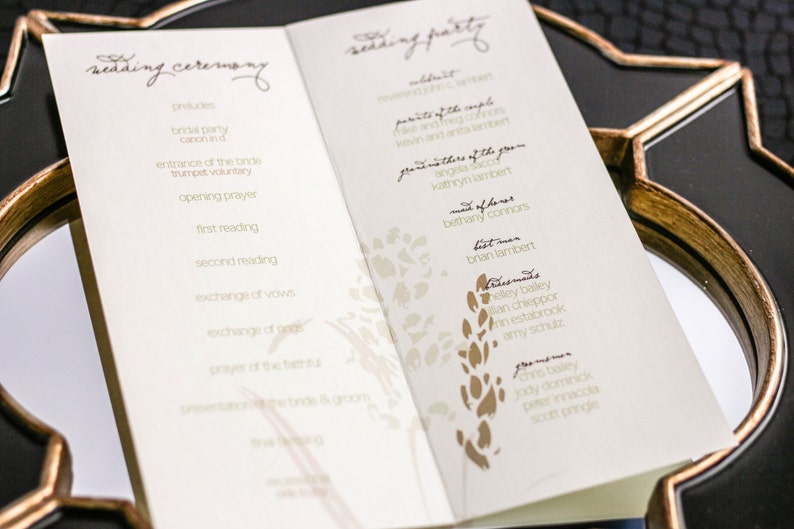 wedding ceremony
preludes
bridal party
canon in d
entrance of the bride
trumpet voluntary
opening prayer
first reading
second reading
exchange of vows
exchange of rings
prayer of the faithful
presentation of the bride & groom
final blessing
wedding party
celebrant
reverend john c. lambert
parents of the couple
mike and meg connors
kevin and anita lambert
grandmothers of the groom
angela sacco
kathryn lambert
maid of honor
bethany connors
best man
brian lambert
bridesmaids
shelley bailey
jillian chieppor
erin estabrook
amy schulz
groomsmen
chris bailey
jody dominick
peter innacola
scott pringle